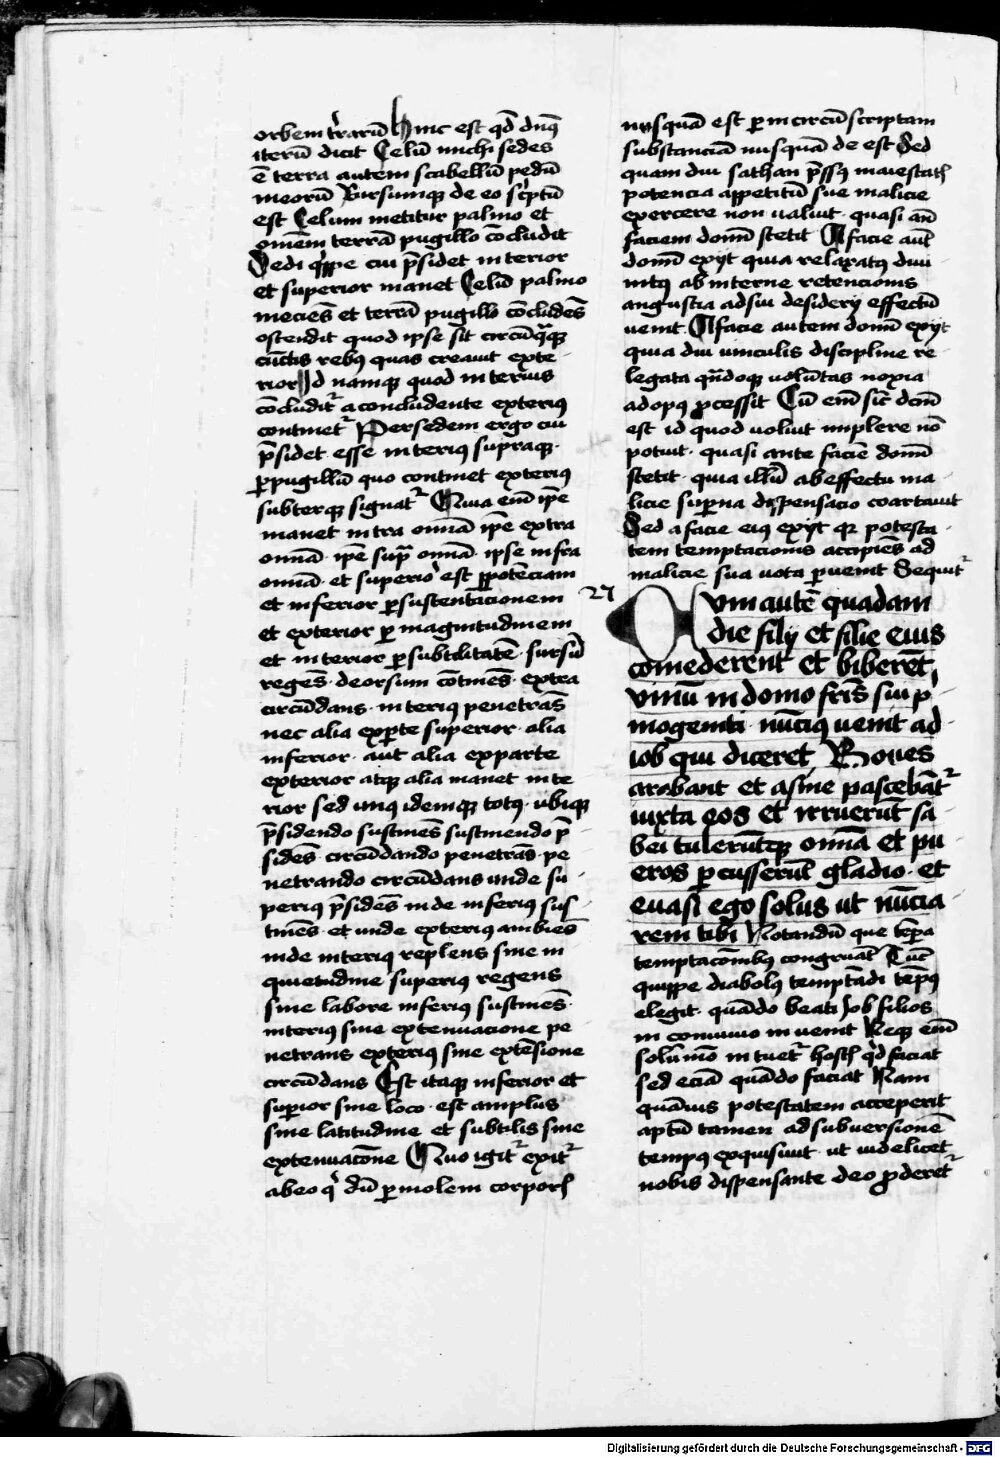 orbem t'rarū Hinc est qd dnꝰ
iterū dicit Celū michi sedes
ē terra autem scabellū pedū
meorū Rursumqꝫ de eo sc'ptū
est Celum metitur palmo et
omēm terrā pugillo cōcludit
Sedi q'ppe cui p̄sidet interior
et superior manet Celū palmo
meciēs et terrā pugillo cōcludēs
ostendit quod ipse sit circūq̄qꝫ
cūctis rebꝰ quas creauit exte
rior Id namqꝫ quod interius
cōcludit' a concludente exteriꝰ
continet' Per sedem ergo cui
p̄sidet esse interiꝰ supraqꝫ
ꝑ pugillū quo continet exteriꝰ
subterqꝫ signat' Quia em̄ ip̄e
manet intra om̄ia ip̄e extra
om̄ia· ip̄e sup̄ om̄ia· ipse infra
om̄ia· et superio' est ꝑ potēciam
et inferior ꝑ sustentacionem
et exterior ꝑ magnitudinem
et interior ꝑ subtilitatē· sursū
regēs· deorsum cōtinēs· extra
circūdans· interiꝰ penetrās
nec alia exꝑte superior· alia
inferior· aut alia ex parte
exterior atqꝫ alia manet inte
rior sed unꝰ idemqꝫ totꝰ· ubiqꝫ
p̄sidendo sustinēs sustinendo p̄
sidēs· circūdando penetrās· pe
netrando circūdans unde su
periꝰ p̄sidēs inde inferiꝰ sus
tinēs· et unde exteriꝰ ambiēs
inde interiꝰ replens sine in
quietudine superiꝰ regens
sine labore inferiꝰ sustinēs·
interiꝰ sine extenuacione pe
netrans exteriꝰ sine extēsione
circūdans Est itaqꝫ inferior et
suꝑior sine loco· est amplus
sine latitudine et subtilis sine
extenuacōne Quo igit' exit'
ab eo q' dū ꝑ molem corporis
nusquā est ꝑ incircūscriptam
substanciā nusquā de est Sed
quam diu sathan p̄ssꝰ maiestatis
potencia appetitū sue malicie
exercere non ualuit· quasi an̄
faciem domī stetit A facie aut̄
domī exijt quia relaxatꝰ diui
nitꝰ ab interne retencionis
angustia ad sui desiderij effectū
uenit A facie autem domī exijt
quia diu uinculis discipline re
legata qn̄doqꝫ uolūtas noxia
ad opꝰ ꝓcessit Cū em̄ sic' dcm̄
est id quod uoluit implere nō
potuit· quasi ante faciē domī
stetit· quia illū ab effectu ma
licie suꝑna dispensacio coartauit
Sed a facie eiꝰ exijt qꝛ potesta
tem temptacionis accipiēs ad
malicie sua uota ꝑuenit Sequit'
27
Cum autē quadam
die filij et filie eius
comederent et biberēt
vinū in domo fr̄is sui p'
mogeniti· nūciꝰ uenit ad
iob qui diceret Boues
arabant et asine pascebāt'
iuxta eos et irruerūt sa
bei tulerūtqꝫ om̄ia et pu
eros ꝑcusserūt gladio· et
euasi ego solus ut nūcia
rem tibi Notandū que tēp̄a
temptacōnibꝰ congruāt Tūc
quippe diabolꝰ temptādi tēpꝰ
elegit· quādo beati Job filios
in conuiuio inuenit Neqꝫ em̄
solūmō intuet' hostis qd faciat
sed eciā quādo faciat Nam
quāuis potestatem acceperit
aptū tamen ad subuersionē
tempꝰ exquisiuit· ut uidelicet
nobis dispensante deo ꝓderet'
Digitalisierung gefördert durch die Deutsche Forschungsgemeinschaft - DFG